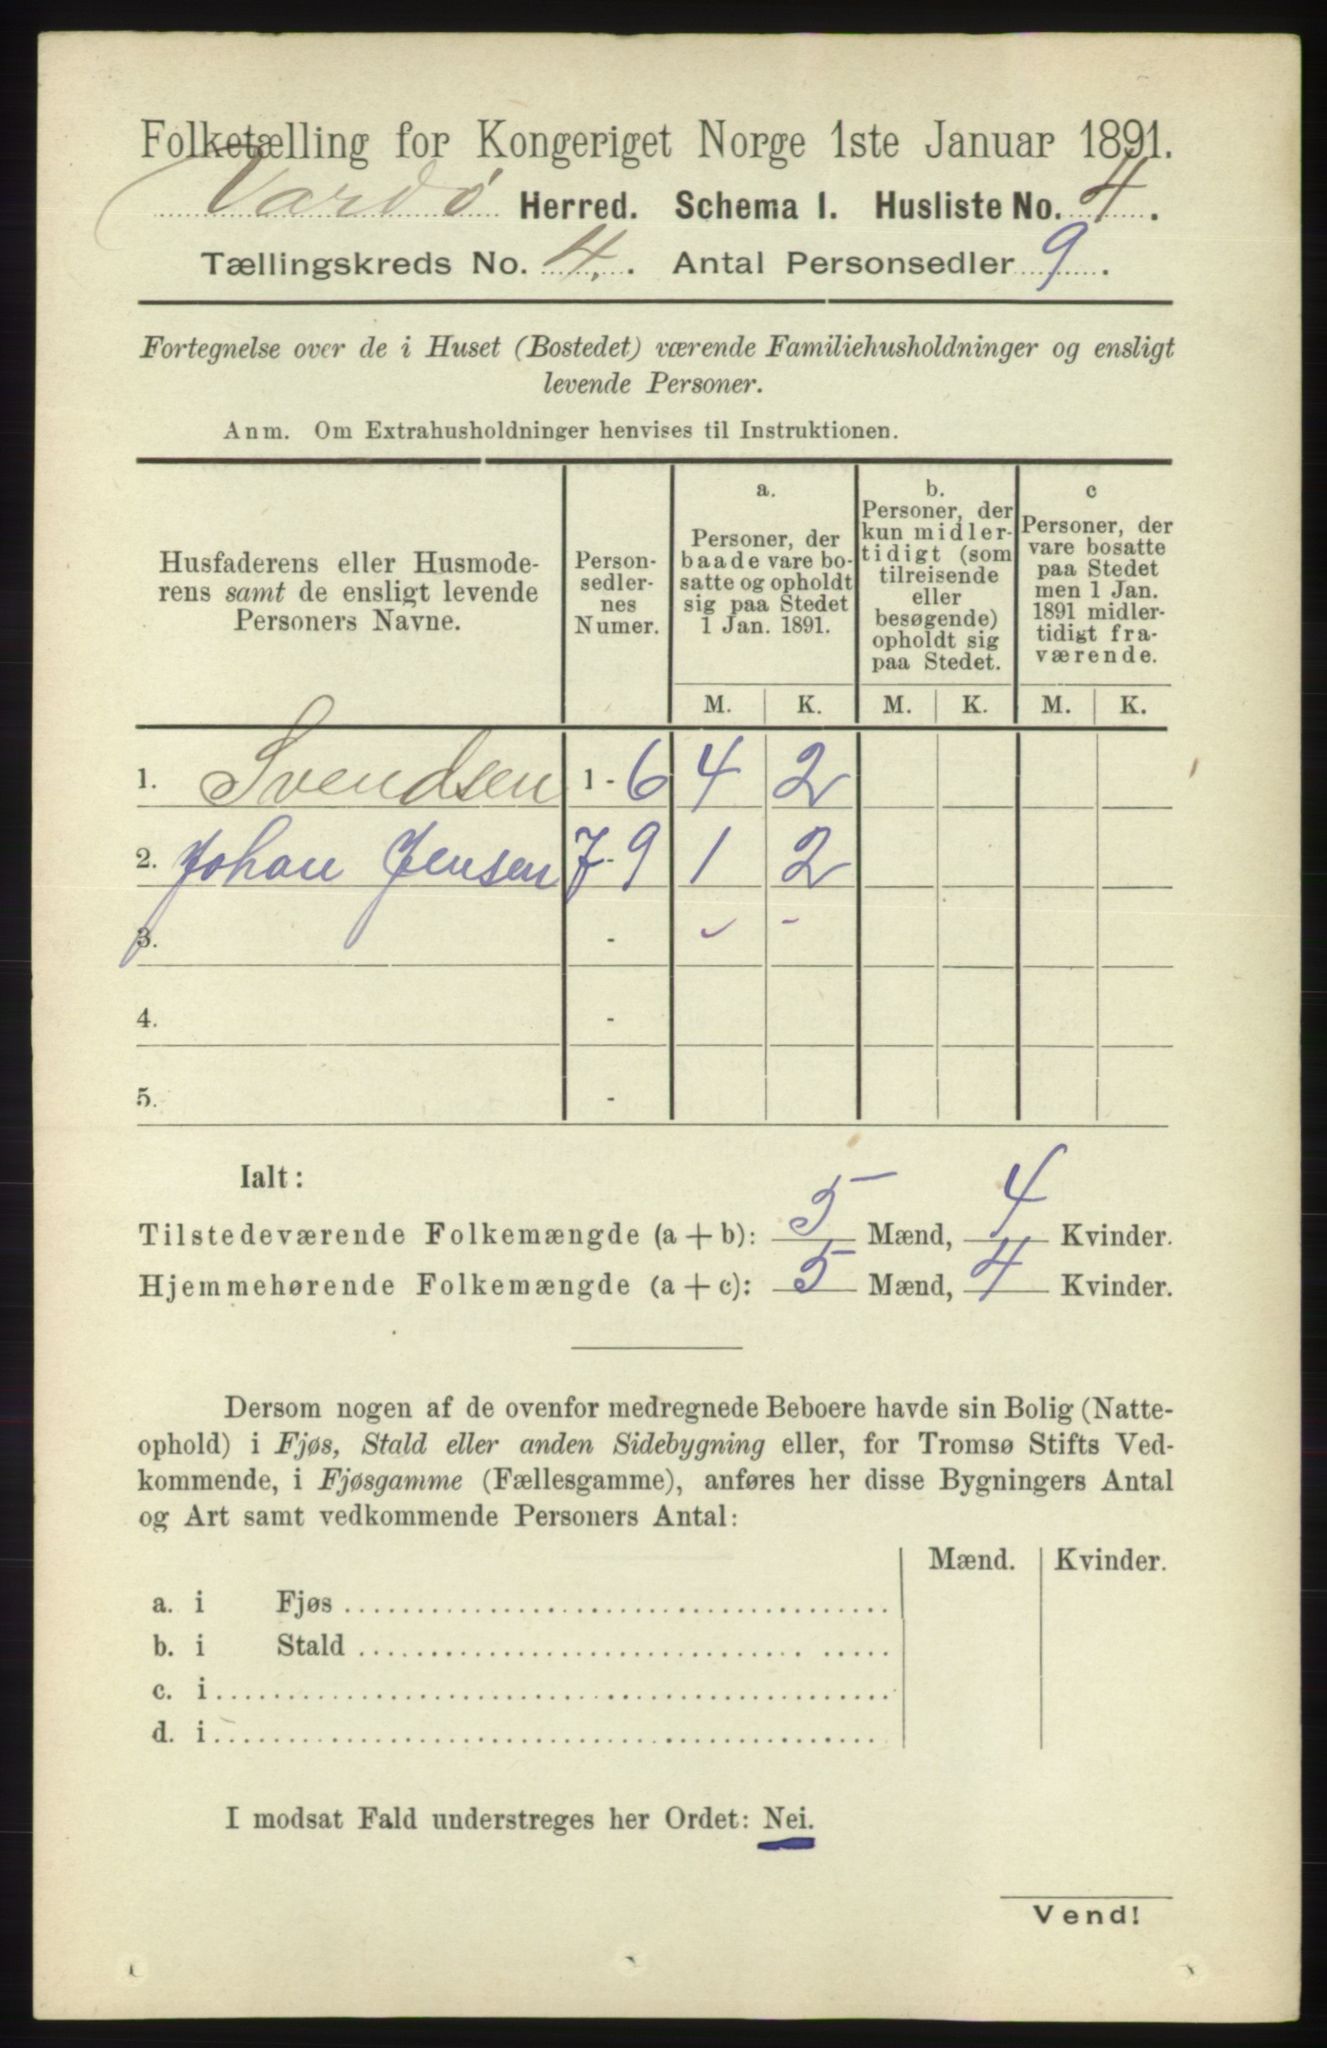 Folketælling for Kongeriget Norge 1ste Januar 1891.
Vardø Herred. Schema I. Husliste No. 4.
Tællingskreds No. 4. Antal Personsedler 9.
Fortegnelse over de i Huset (Bostedet) værende Familiehusholdninger og ensligt
levende Personer.
Anm. Om Extrahusholdninger henvises til Instruktionen.
Husfaderens eller Husmode-
rens samt de ensligt levende
Personers Navne.
Person-
sedler-
nes
Numer.
a.
Personer, der
baade vare bo-
satte og opholdt
sig paa Stedet
1 Jan. 1891.
b.
Personer, der
kun midler-
tidigt (som
tilreisende
eller
besøgende)
opholdt sig
paa Stedet.
c
Personer, der
vare bosatte
paa Stedet
men 1 Jan.
1891 midler-
tidigt fra-
værende.
M. K. M. K. M. K.
1. Svendsen 1 - 6 4 2
2. Johan Jensen 7 - 9 1 2
3. -
4. -
5. -
Ialt:
Tilstedeværende Folkemængde (a + b): 5 Mænd, 4 Kvinder.
Hjemmehørende Folkemængde (a + c): 5 Mænd, 4 Kvinder.
Dersom nogen af de ovenfor medregnede Beboere havde sin Bolig (Natte-
ophold) i Fjøs, Stald eller anden Sidebygning eller, for Tromsø Stifts Ved-
kommende, i Fjøsgamme (Fællesgamme), anføres her disse Bygningers Antal
og Art samt vedkommende Personers Antal:
Mænd. Kvinder.
a. i Fjøs
b. i Stald
c. i
d. i
I modsat Fald understreges her Ordet: Nei.
Vend!